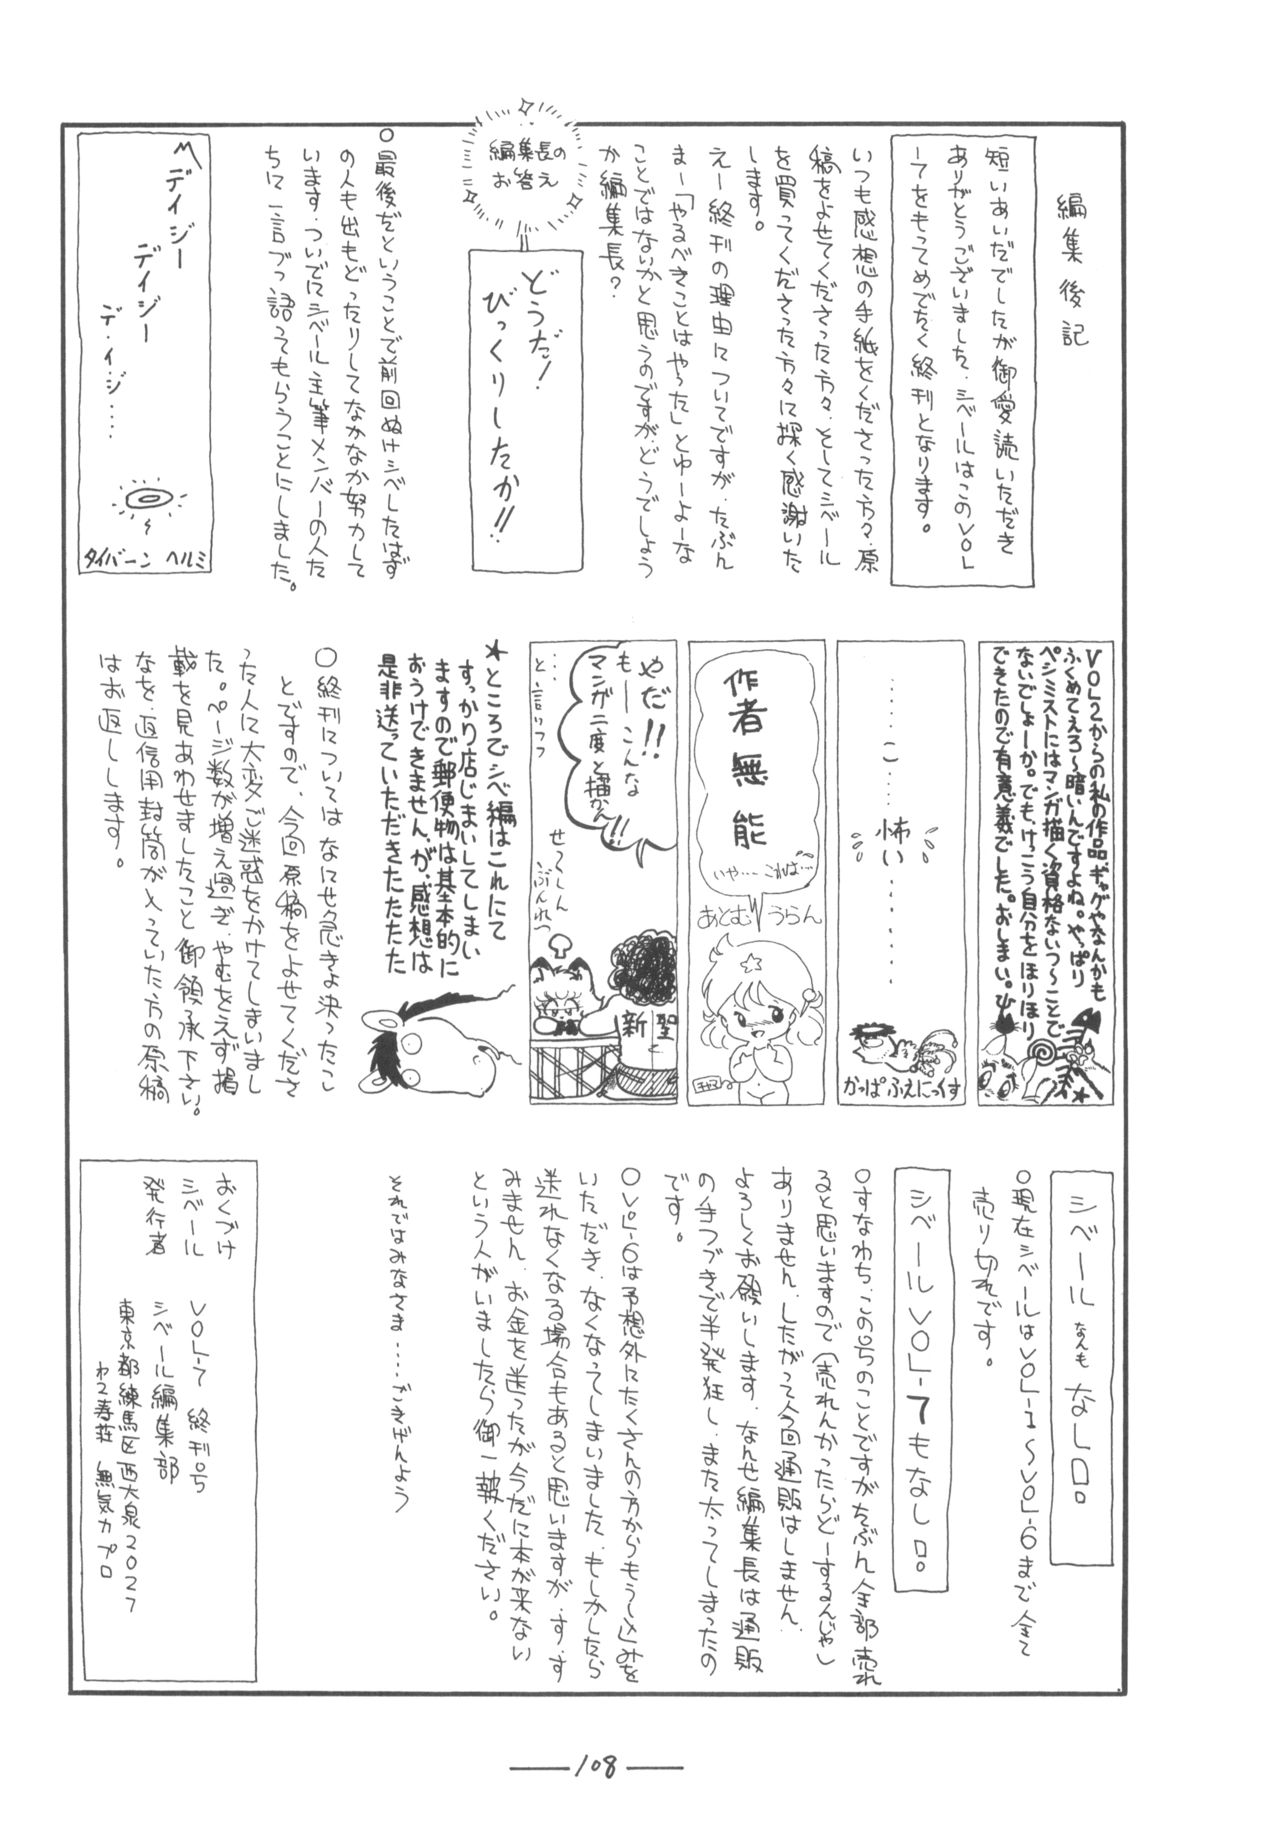 編集後記
短いあいだでしたが御愛読いただき
ありがとうございました.シベールはこのVOL
ーてをもってめでたく終刊となります。
いつも感想の手紙をくださった方々.原
稿をよせてくださった方々.そしてシベール
を買ってくださった方々に深く感謝いた
します。
えー終刊の理由についてですが.たぶん
まー「やるべきことはやった」とゆーよーな
ことではないかと思うのですが.どうでしょう
か編集長?
編集長の
お答え
どうだ!
びっくりしたか!!
○最後だということで前回ぬけシベしたはず
の人も出もどったりしてなかなか努力して
います.ついでにシベール主筆メンバーの人た
ちに一言づつ語ってもらうことにしました。
デイジー
デイジー
デ.イ.ジ.....
タイバーン ヘルミ
VOL2からの私の作品、ギャグやなんかも
ふくめてえろ〜暗いんですよね。やっぱり
ペシミストにはマンガ描く資格ないつ〜ことで
ないでしょーか。でも、けっこう自分をほりほり
できたので有意義でした。おしまい。
......こ......
怖い......
かっぱふぇにっくす
作者無能
いや...これは...
あとむ うらん
やだ!!
もーーこんな
マンガ二度と
描かん!!
...と言いつつ
せーしん
ぶんれつ
新聖
★ところでシベ編はこれにて
すっかり店じまいしてしまい
ますので郵便物は基本的に
おうけできません.が、感想は
是非送っていただきたたたた
○終刊についてはなにせ急きょ決ったこし
とですので、今回原稿をよせてくださ
った人に大変ご迷惑をかけてしまいまし
た。ページ数が増え過ぎ.やむをえず掲
載を見あわせましたこと御領承下さい。
なを.返信用封筒が入っていた方の原稿
はお返しします。
シベールなんもなし口。
○現在シベールはVOL-1〜VOL-6まで全て
売り切れです。
シベールVOL-7もなし口。
○すなわち.この号のことですがたぶん全部売れ
ると思いますので(売れんかったらどーするんじゃ)
ありません.したがって今回通販はしません.
よろしくお願いします.なんせ編集長は通販
の手つづきで半発狂し.また太ってしまったの
です。
○VOL-6は予想外にたくさんの方からもうし込みを
いただき.なくなってしまいました.もしかしたら
送れなくなる場合もあると思いますが.す.す
みません.お金を送ったが今だに本が来ない
という人がいましたら御一報ください。
それではみなさま.....ごきげんよう
おくづけ
シベール VOL-7 終刊号
発行者 シベール編集部
東京都練馬区西大泉2027
無気力プロ
108